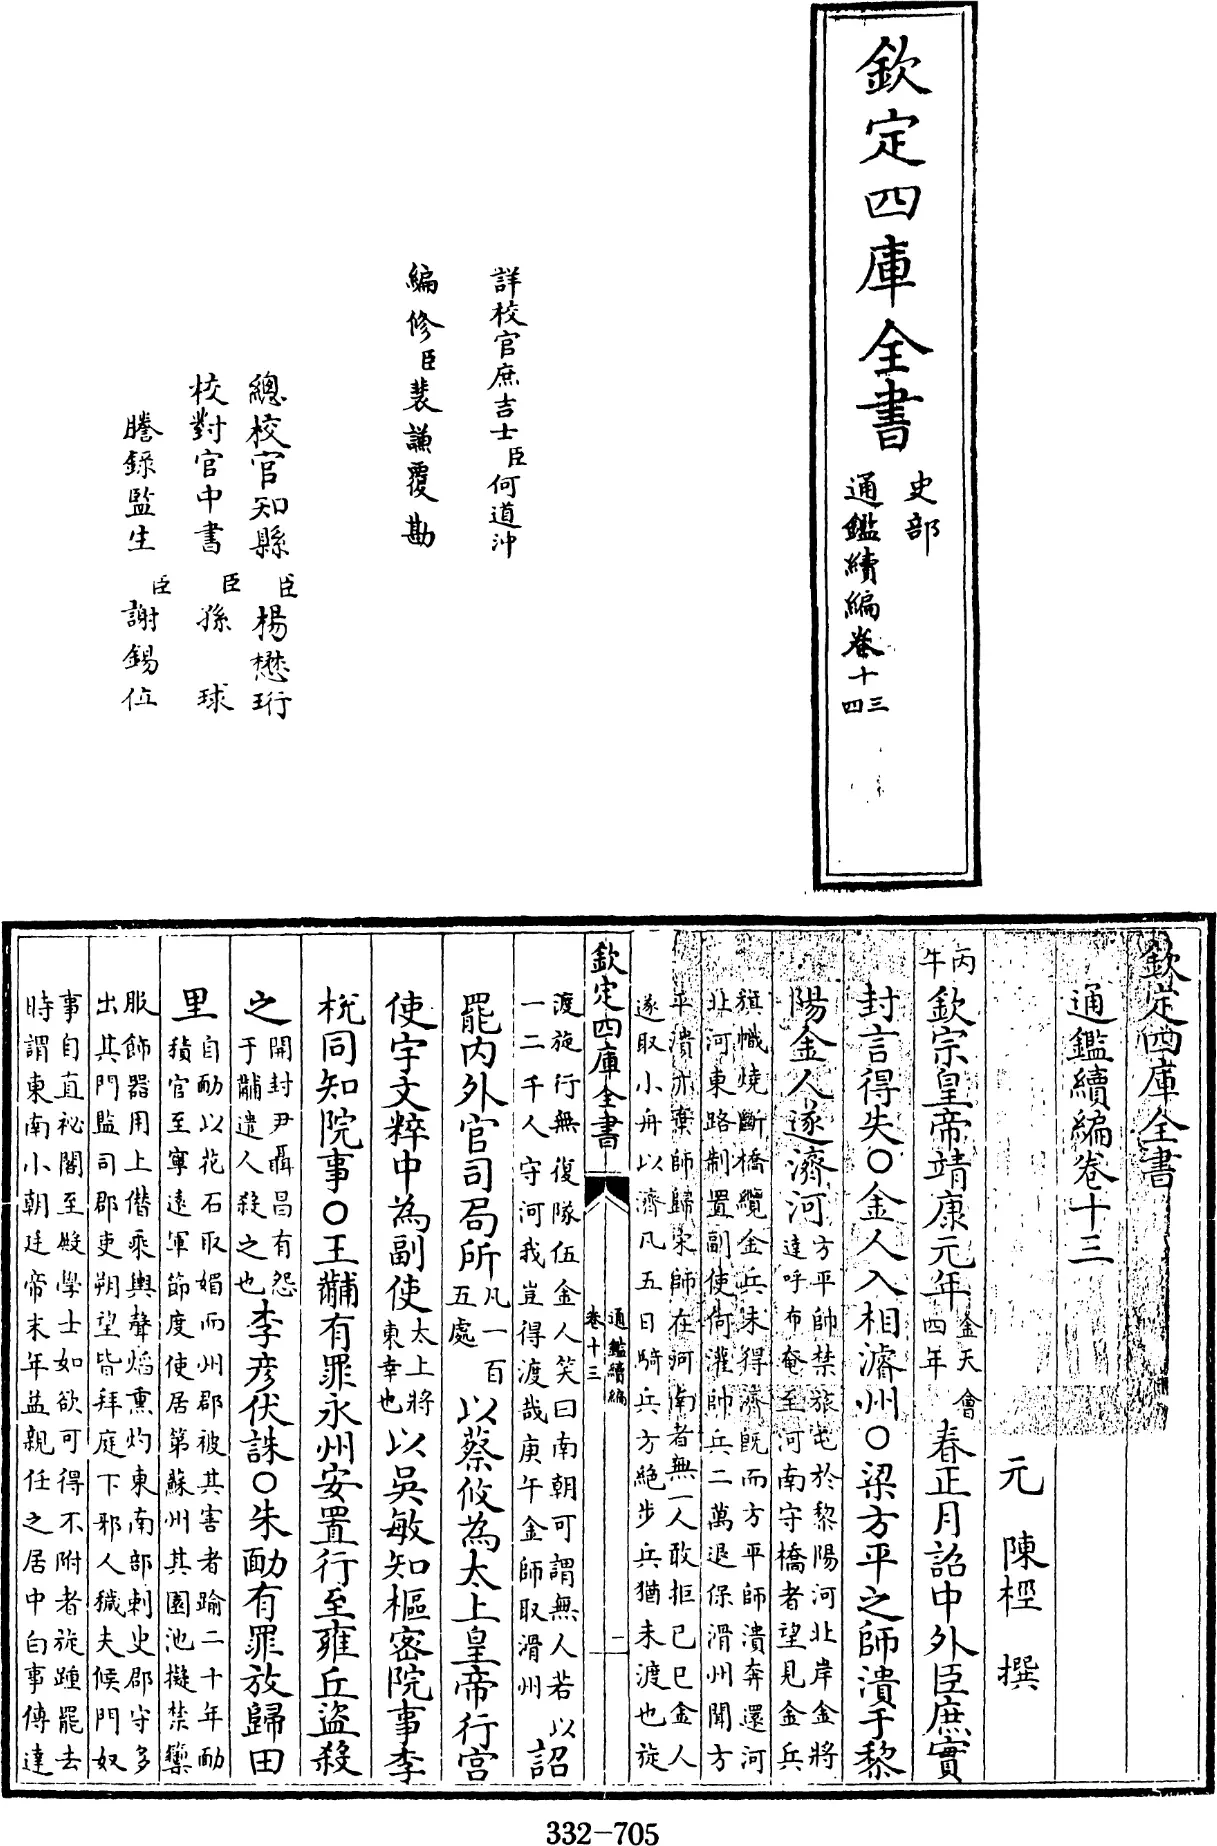 欽定四庫全書
史部
通鑑續編卷十三
四
詳校官庶吉士臣何道沖
編修臣裴謙覆勘
總校官知縣臣楊懋珩
校對官中書臣孫球
謄錄監生臣謝錫位
欽定四庫全書
通鑑續編卷十三
元 陳桱 撰
丙午欽宗皇帝靖康元年金天會四年春正月詔中外臣庶實
封言得失〇金人入相濬州〇梁方平之師潰于黎
陽金人遂濟河方平帥禁旅屯於黎陽河北岸金將
達呼布奄至河南守橋者望見金兵
旗幟燒斷橋纜金兵未得濟既而方平師潰奔還河
北河東路制置副使何灌帥兵二萬退保滑州聞方
平潰亦棄師歸宋師在河南者無一人敢拒己巳金人
遂取小舟以濟凡五日騎兵方絶步兵猶未渡也旋
欽定四庫全書
通鑑續編
卷十三
二
渡旋行無復隊伍金人笑曰南朝可謂無人若以
一二千人守河我豈得渡哉庚午金師取滑州
詔
罷内外官司局所凡一百五處以蔡攸為太上皇帝行宫
使宇文粹中為副使太上將東幸也以吳敏知樞密院事李
梲同知院事〇王黼有罪永州安置行至雍丘盜殺
之開封尹聶昌有怨于黼遣人殺之也李彦伏誅〇朱勔有罪放歸田
里自勔以花石取媚而州郡被其害者踰二十年勔
積官至寧遠軍節度使居第蘇州其園池擬禁籞
服飾器用上僭乘輿聲焰熏灼東南部刺史郡守多
出其門監司郡吏朔望皆拜庭下邪人穢夫候門奴
事自直祕閣至殿學士如欲可得不附者旋踵罷去
時謂東南小朝廷帝末年益親任之居中白事傳達
332-705